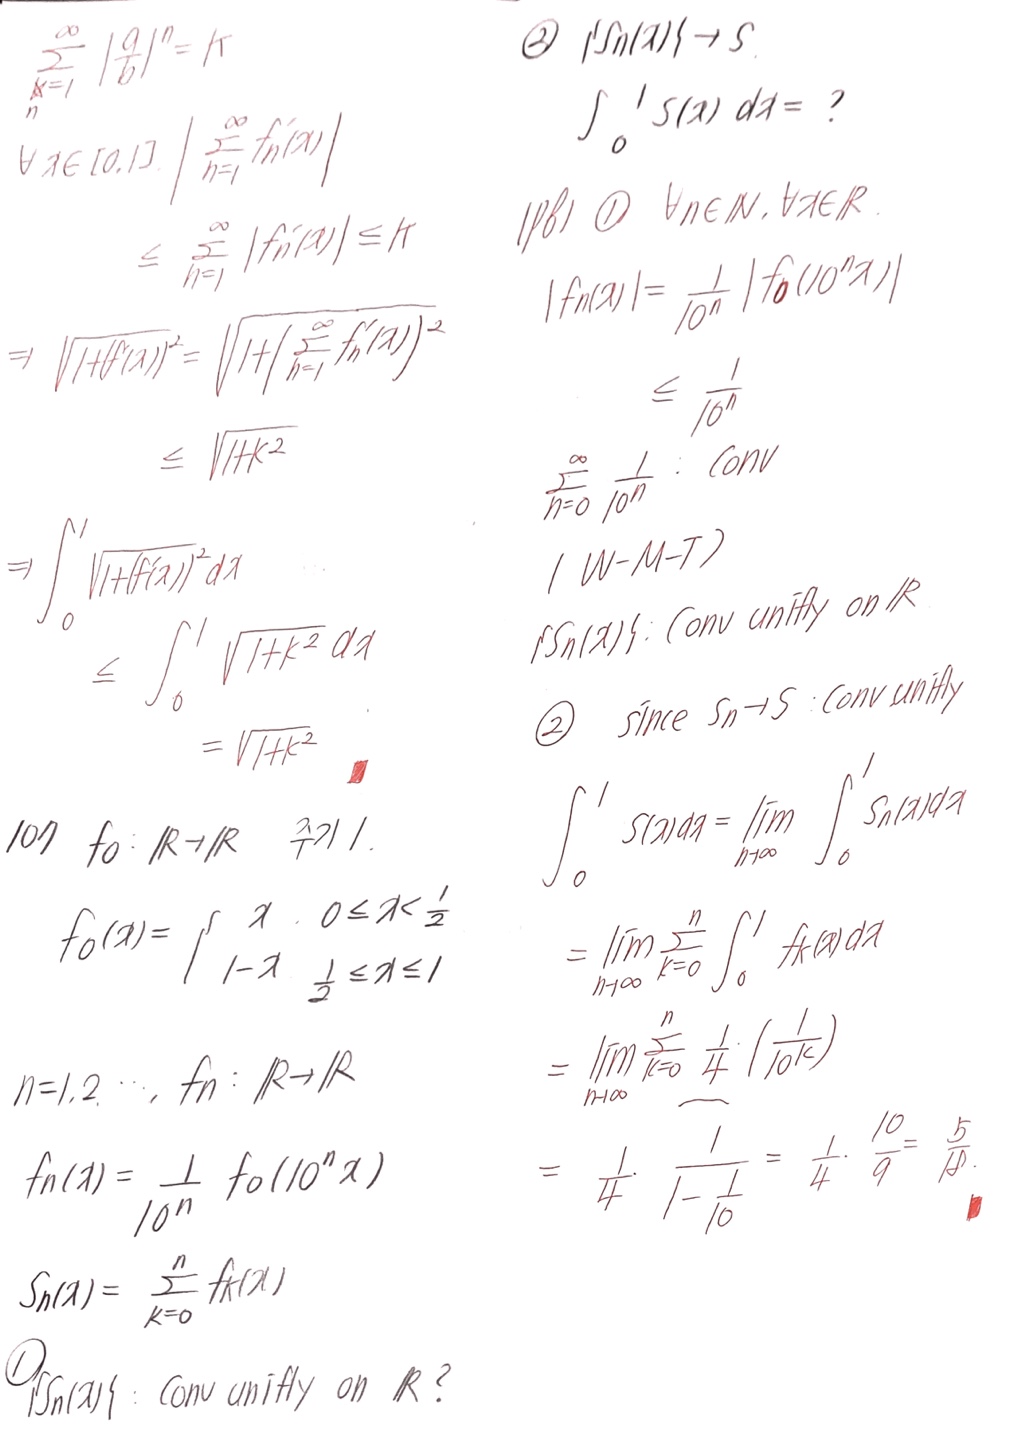 ∞
Σ |a/b|ⁿ = K
k=1
n
∀x∈[0,1]. | Σ_{n=1}^{∞} fn'(x) |
≤ Σ_{n=1}^{∞} |fn'(x)| ≤ K
⇒ √(1+(f'(x))² = √(1+(Σ_{n=1}^{∞} fn'(x))²
≤ √(1+K²)
⇒ ∫₀¹ √(1+(f'(x))² dx
≤ ∫₀¹ √(1+K²) dx
= √(1+K²)
107 f0 : ℝ→ℝ 주기 1.
f0(x) = { x . 0≤x<1/2
1-x 1/2≤x≤1
n=1,2 ···, fn : ℝ→ℝ
fn(x) = 1/10ⁿ f0(10ⁿx)
Sn(x) = Σ_{k=0}^{n} fk(x)
① {Sn(x)} : Conv unifly on ℝ?
② {Sn(x)} → S.
∫₀¹ S(x) dx = ?
(pf) ① ∀n∈ℕ, ∀x∈ℝ.
|fn(x)| = 1/10ⁿ |f0(10ⁿx)|
≤ 1/10ⁿ
Σ_{n=0}^{∞} 1/10ⁿ : Conv
(W-M-T)
{Sn(x)} : Conv unifly on ℝ
② since Sn→S : Conv unifly
∫₀¹ S(x)dx = lim_{n→∞} ∫₀¹ Sn(x)dx
= lim_{n→∞} Σ_{k=0}^{n} ∫₀¹ fk(x)dx
= lim_{n→∞} Σ_{k=0}^{n} 1/4 · (1/10ᵏ)
= 1/4 · 1/(1-1/10) = 1/4 · 10/9 = 5/18.